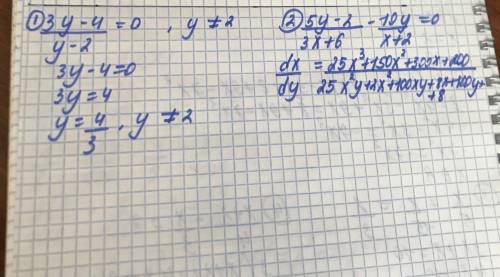 ① (3y-4)/(y-2) = 0 , y ≠ 2
3y-4=0
3y=4
y = 4/3 , y ≠ 2
② (5y-2)/(3x+6) - 10y/(x+2) = 0
dx/dy = (25x³+150x²+300x+200)/(25x²y+2x²+100xy+8x+100y+8)